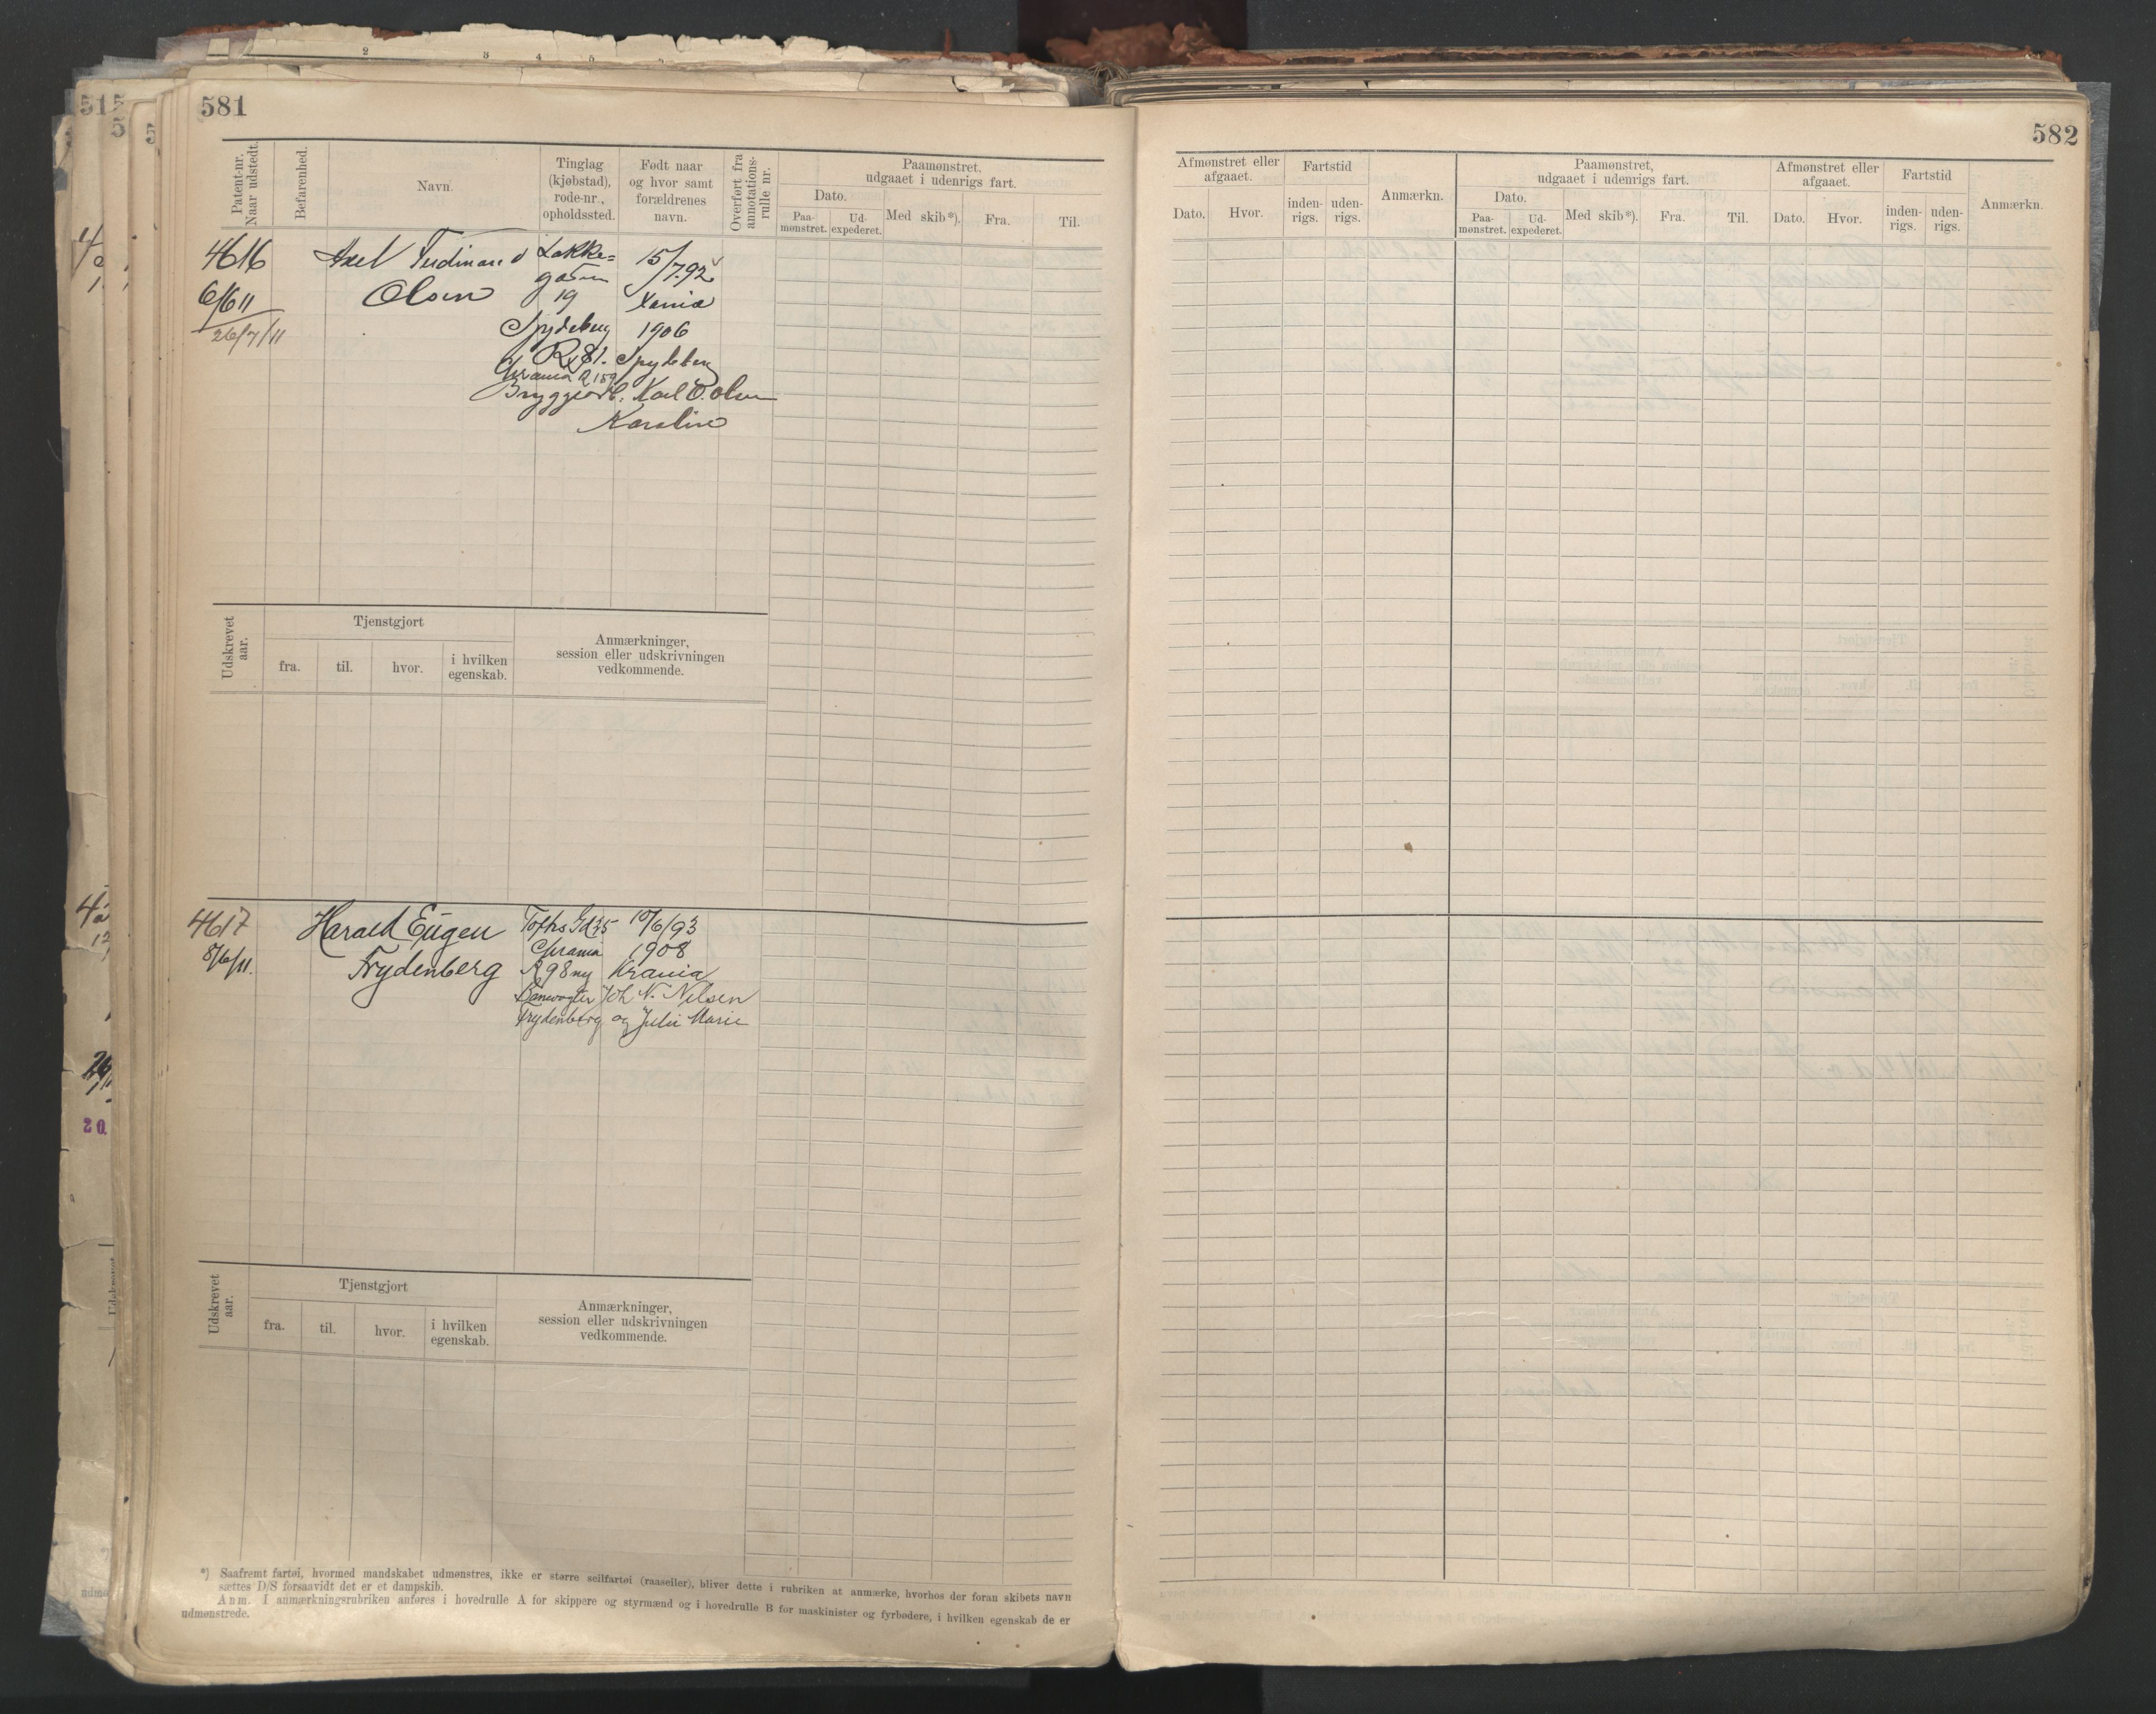 581
Patent-nr.
Naar udstedt.
Befarenhed.
Navn.
Tinglag
(kjøbstad),
rode-nr.,
opholdssted.
Født naar
og hvor samt
forældrenes
navn.
Overført fra
annotations-
rulle nr.
Paamønstret,
udgaaet i udenrigs fart.
Dato.
Paa-
mønstret.
Ud-
expederet.
Med skib*).
Fra.
Til.
4616
6/6 11
26/7/11
Axel Ferdinand
Olsen
Lakke=
gaten
19
Spydeberg
R 81.
Chrania R 159
15/7.92
Xania
1906
Spydeberg
Bryggearb. Karl O. Olsen
Karoline
Udskrevet
aar.
Tjenstgjort
fra.
til.
hvor.
i hvilken
egenskab.
Anmærkninger,
session eller udskrivningen
vedkommende.
4617
8/6/11.
Harald Eugen
Frydenberg
Tofts Gd 35
Chrania
R 98 ny
10/6/93
1908
Krania
Banevogter Joh N. Nilsen
Frydenberg og Julie Marie
Udskrevet
aar.
Tjenstgjort
fra.
til.
hvor.
i hvilken
egenskab.
Anmærkninger,
session eller udskrivningen
vedkommende.
*) Saafremt fartøi, hvormed mandskabet udmønstres, ikke er større seilfartøi (raaseiler), bliver dette i rubriken at anmærke, hvorhos der foran skibets navn
sættes D/S forsaavidt det er et dampskib.
Anm. I anmærkningsrubriken anføres i hovedrulle A for skippere og styrmænd og i hovedrulle B for maskinister og fyrbødere, i hvilken egenskab de er
udmønstrede.
582
Afmønstret eller
afgaaet.
Dato.
Hvor.
Fartstid
inden-
rigs.
uden-
rigs.
Anmærkn.
Paamønstret,
udgaaet i udenrigs fart.
Dato.
Paa-
mønstret.
Ud-
expederet.
Med skib*).
Fra.
Til.
Afmønstret eller
afgaaet.
Dato.
Hvor.
Fartstid
inden-
rigs.
uden-
rigs.
Anmærkn.